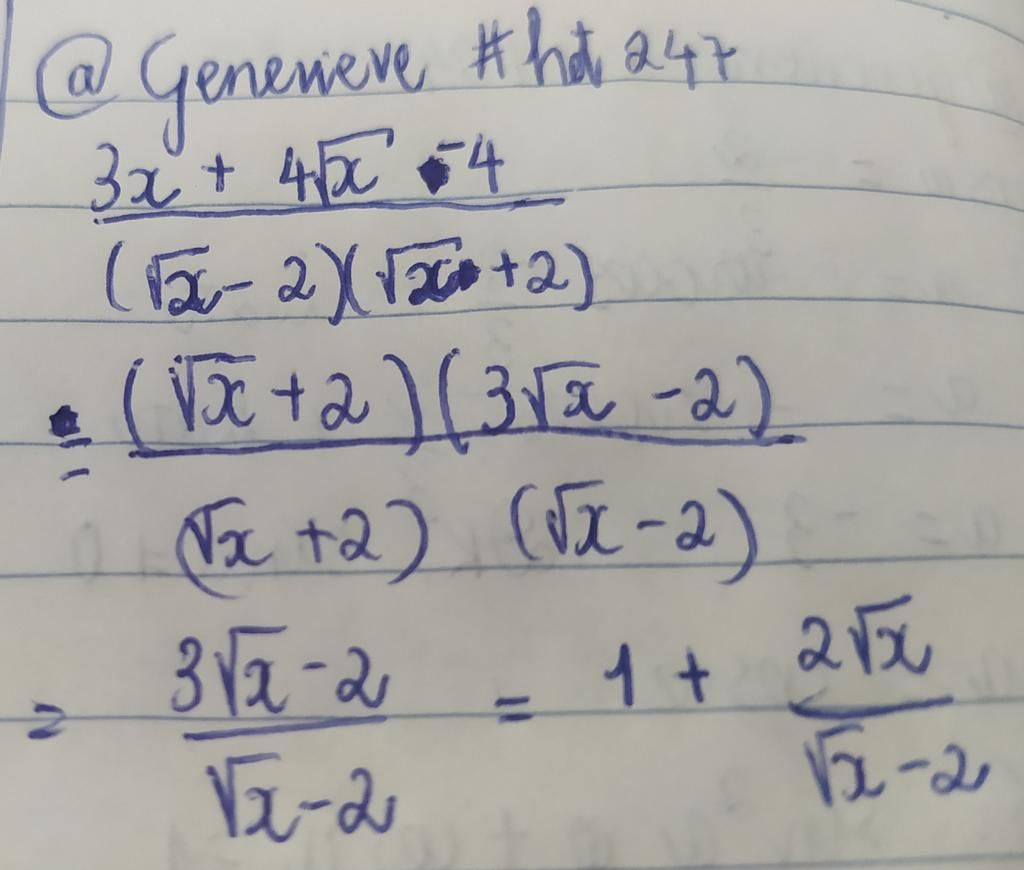 @ Genevieve #hot 247
3x + 4√x - 4
(√x - 2)(√x + 2)
= (√x + 2)(3√x - 2)
(√x + 2) (√x - 2)
= 3√x - 2 = 1 + 2√x
√x - 2 √x - 2